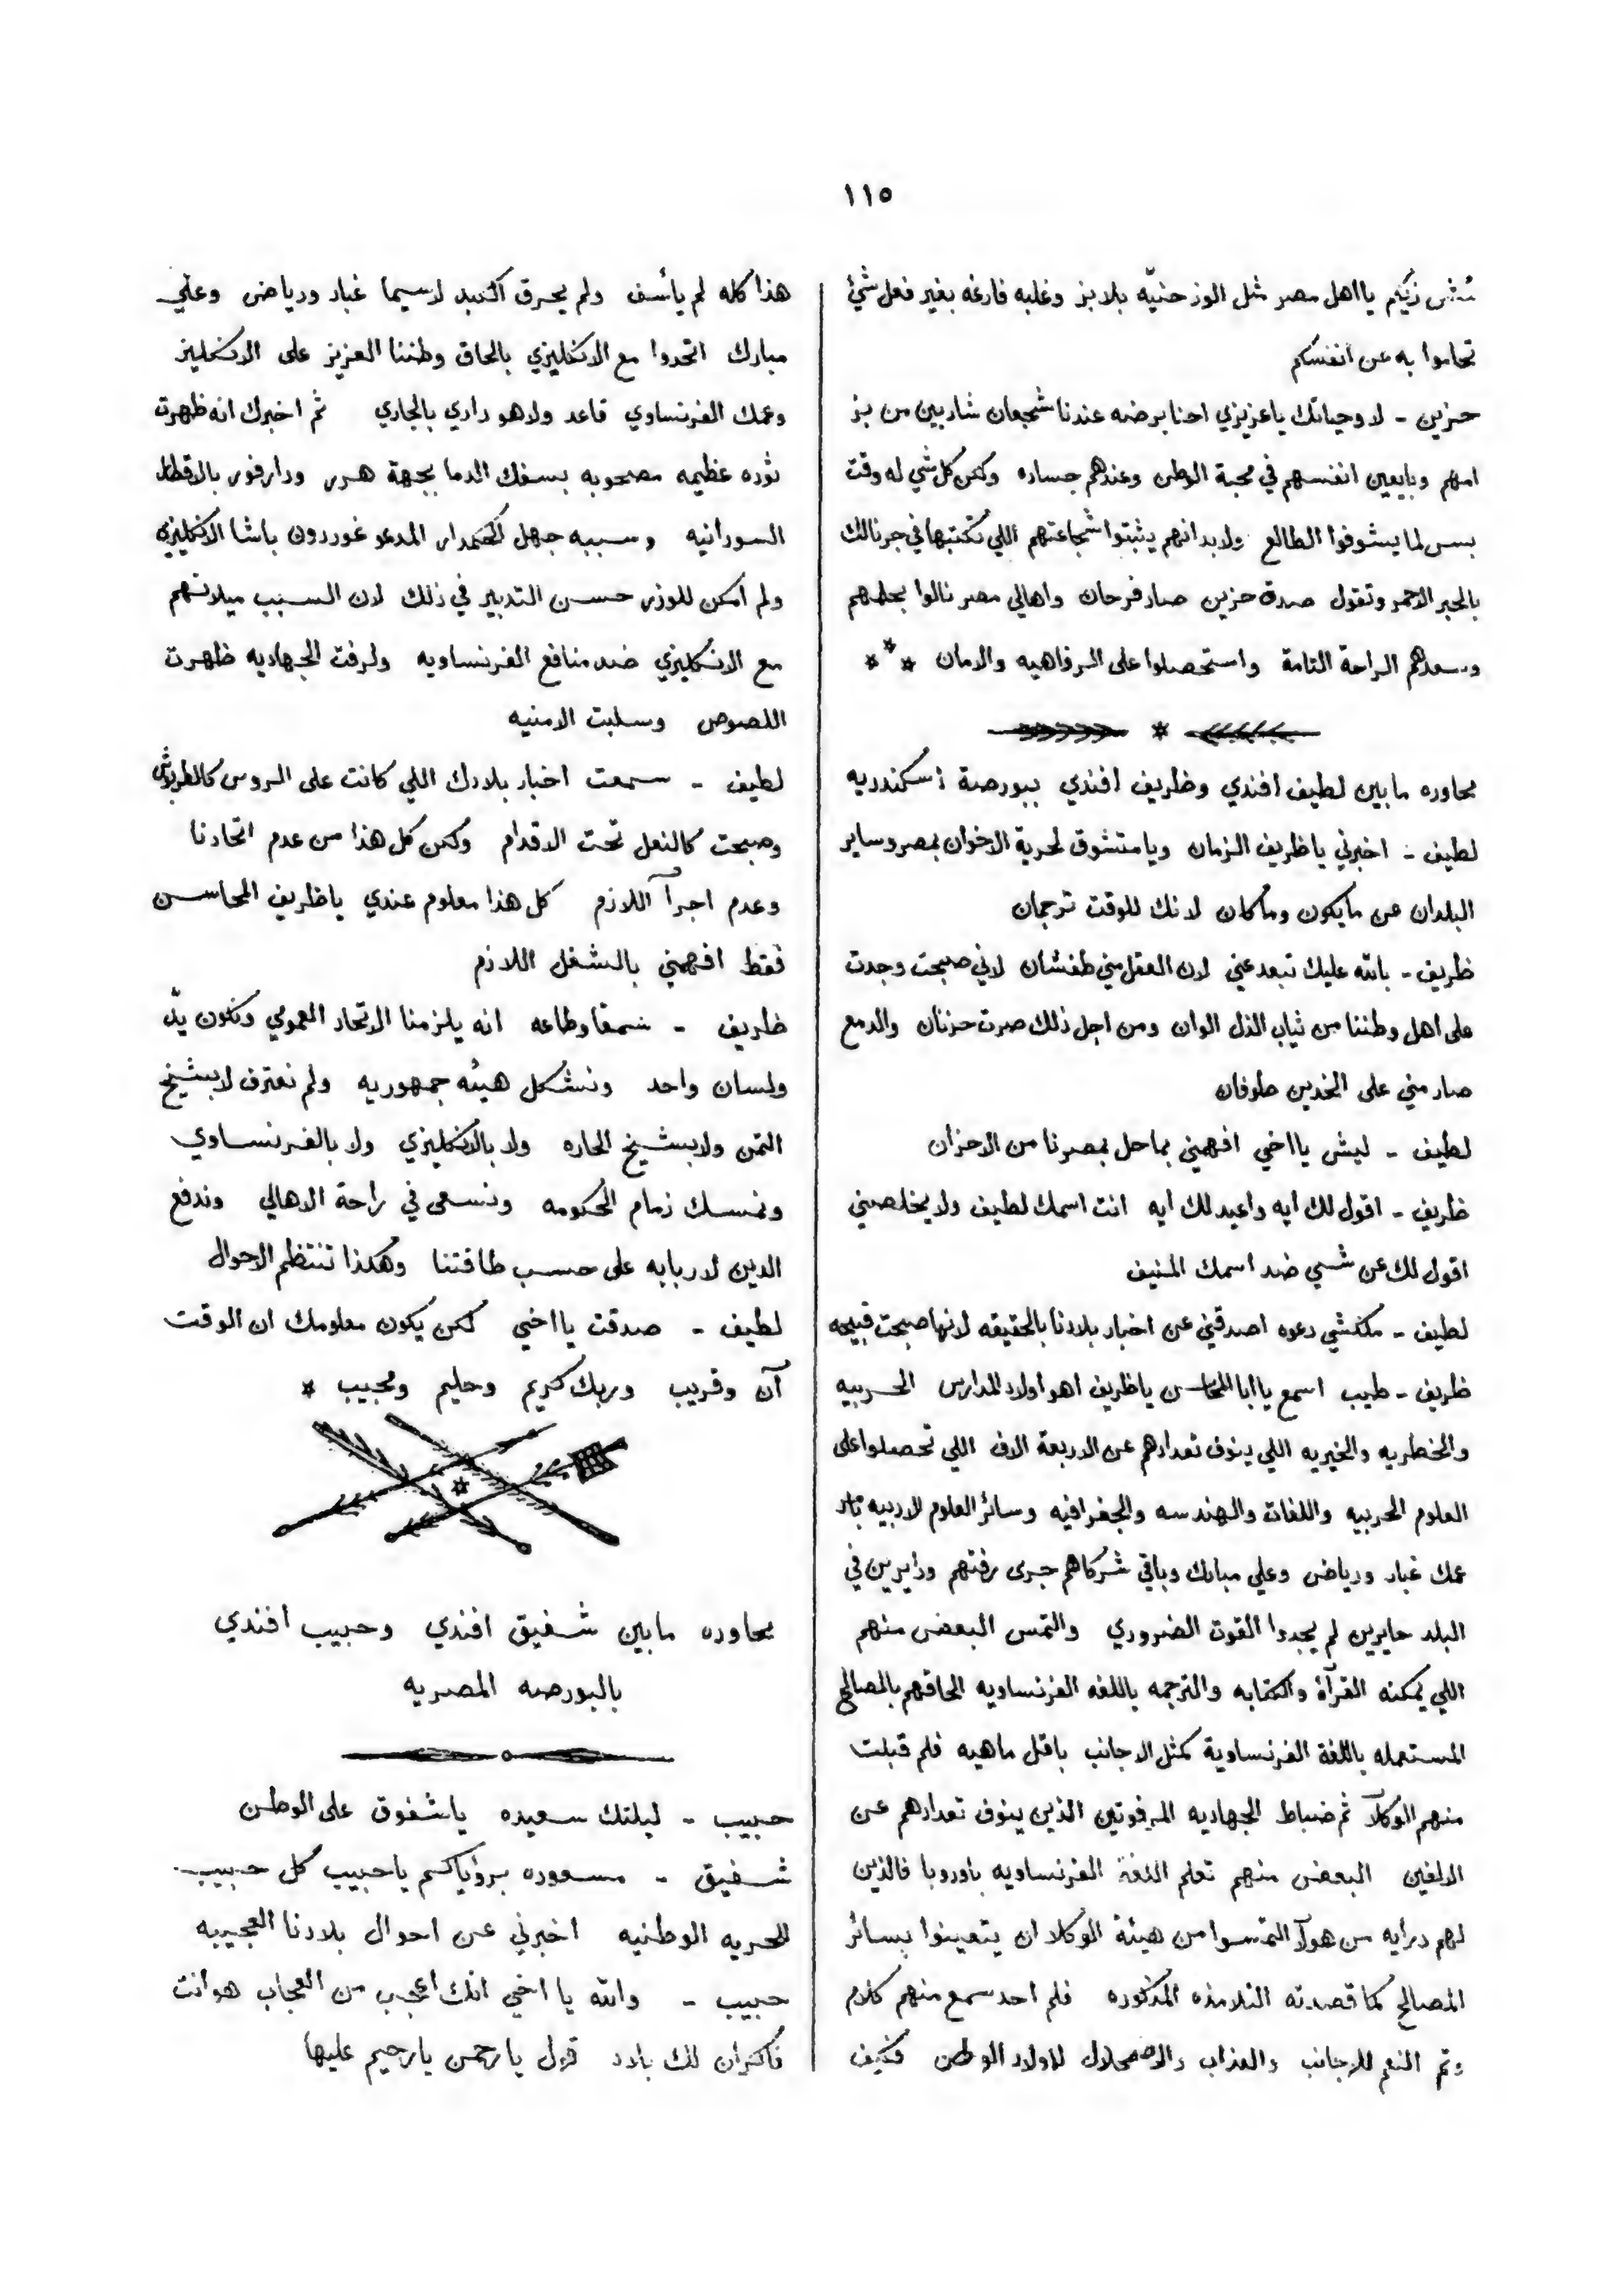 ١١٥
مش زيكم يا اهل مصر مثل الوز حنيّه بلا بز وغلبه فارغه بغير فعل شئ
تحاموا به عن انفسكم
حزين - لا وحياتك يا عزيزي احنا برضه عندنا شجعان شاربين من بز
امهم وبايعين انفسهم في محبة الوطن وعندهم جساره ولكن كل شي له وقت
بس لما يشوفوا الطالع ولا بد انهم يثبتوا شجاعتهم اللي تكتبها في جرنالك
بالحبر الاحمر وتقول صدق حزين صار فرحان واهالي مصر نالوا بحلمهم
وسعدهم الراحة التامة واستحصلوا على الرفاهيه والامان ***
*
محاوره ما بين لطيف افندي وظريف افندي ببورصة اسكندريه
لطيف - اخبرني يا ظريف الزمان ويا متشوق لحرية الاخوان بمصر وساير
البلدان عن ما يكون وما كان لانك للوقت ترجمان
ظريف - بالله عليك تبعد عني لان العقل مني طفشان لاني صبحت وجدت
على اهل وطننا من ثياب الذل الوان ومن اجل ذلك صرت حزنان والدمع
صار مني على الخدين طوفان
لطيف - ليش يا اخي افهمني بما حل بمصرنا من الاحزان
ظريف - اقول لك ايه واعيد لك ايه انت اسمك لطيف ولا يخلصني
اقول لك عن شي ضد اسمك المنيف
لطيف - مكنشي دعوه اصدقني عن اخبار بلادنا بالحقيقه لانها صبحت قبيحه
ظريف - طيب اسمع يا ابا المحاسن يا ظريف اهو اولاد المدارس الحربيه
والخطريه والخيريه اللي ينوف تعدادهم عن الاربعة الاف اللي تحصلوا على
العلوم الحربيه واللغات والهندسه والجغرافيه وسائر العلوم الادبيه بتاع
عمك غبار ورياض وعلي مبارك وباقي شركاهم جرى رفتهم ودايرين في
البلد حايرين لم يجدوا القوت الضروري والتمس البعض منهم
اللي يمكنه القرآة والكتابه والترجمه باللغه الفرنساويه الحاقهم بالمصالح
المستعمله باللغة الفرنساوية كمثل الاجانب باقل ماهيه فلم قبلت
منهم الوكلآ ثم ضباط الجهاديه المرفوتين الذين ينوف تعدادهم عن
الالفين البعض منهم تعلم اللغة الفرنساويه باوروبا فالذين
لهم درايه من هولآ التمسوا من هيئة الوكلا ان يتعينوا بسائر
المصالح كما قصدته التلامذه المذكوره فلم احد سمع منهم كلام
وتم النعم للاجانب والعذاب والاضمحلال لاولاد الوطن فكيف
هذا كله لم يأسف ولم يحرق الكبد لاسيما غبار ورياض وعلي
مبارك اتحدوا مع الانكليزي بالحاق وطننا العزيز على الانكليز
وعمك الفرنساوي قاعد ولا هو داري بالجاري ثم اخبرك انه ظهرت
ثوره عظيمه مصحوبه بسفك الدما بجهة هرر ودارفور بالاقطار
السودانيه وسببه جهل الحكمدار المدعو غوردون باشا الانكليزي
ولم امكن للوزر حسن التدبير في ذلك لان السبب ميلانهم
مع الانكليزي ضد منافع الفرنساويه ولرفت الجهاديه ظهرت
اللصوص وسلبت الامنيه
لطيف - سمعت اخبار بلادك اللي كانت على الروس كالطربوش
وصبحت كالنعل تحت الاقدام ولكن كل هذا من عدم اتحادنا
وعدم اجرآ اللازم كل هذا معلوم عندي يا ظريف المحاسن
فقط افهمني بالشغل اللازم
ظريف - سمعًا وطاعه انه يلزمنا الاتحاد العمومي ونكون يدّ
ولسان واحد ونشكل هيئه جمهوريه ولم نعترف لا بشيخ
التمن ولا بشيخ الحاره ولا بالانكليزي ولا بالفرنساوي
ونمسك زمام الحكومه ونسعى في راحة الاهالي وندفع
الدين لاربابه على حسب طاقتنا وهكذا تنتظم الاحوال
لطيف - صدقت يا اخي لكن يكون معلومك ان الوقت
آن وقريب وربك كريم وحليم ومجيب *
*
محاوره ما بين شفيق افندي وحبيب افندي
بالبورصه المصريه
حبيب - ليلتك سعيده يا شفوق على الوطن
شفيق - مسعوده برؤياكم يا حبيب كل حبيب
للحريه الوطنيه اخبرني عن احوال بلادنا العجيبه
حبيب - والله يا اخي انك اعجب من العجاب هو انت
فاكران لك بلاد قول يا رحمن يا رحيم عليها